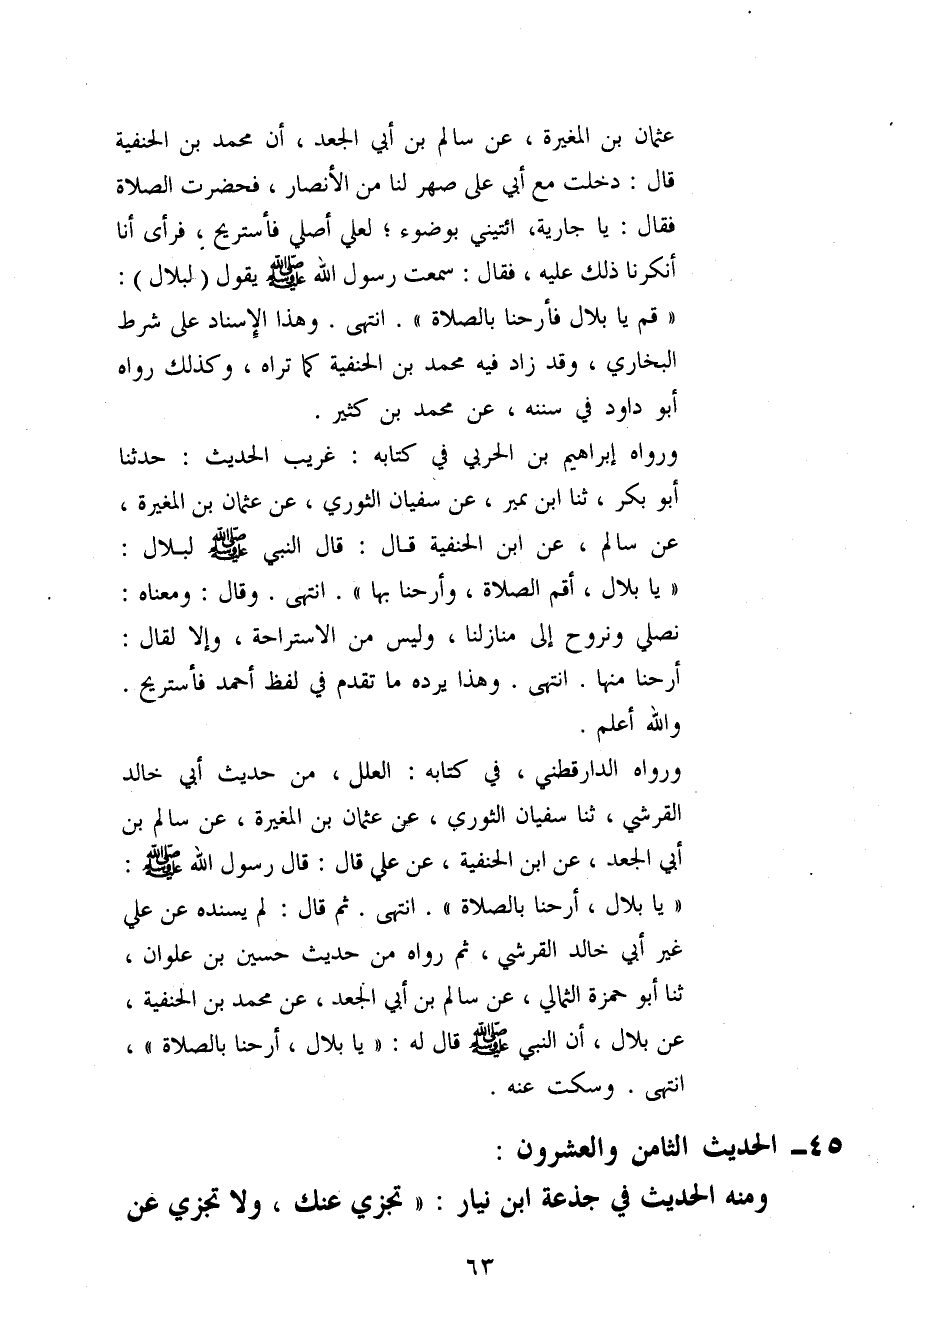 عثمان بن المغيرة ، عن سالم بن أبي الجعد ، أن محمد بن الحنفية
قال : دخلت مع أبي على صهر لنا من الأنصار ، فحضرت الصلاة
فقال : يا جارية، ائتيني بوضوء ؛ لعلي أصلي فأستريح ، فرأى أنا
أنكرنا ذلك عليه ، فقال : سمعت رسول الله ﷺ يقول ( لبلال ) :
« قم يا بلال فأرحنا بالصلاة » . انتهى . وهذا الإسناد على شرط
البخاري ، وقد زاد فيه محمد بن الحنفية كما تراه ، وكذلك رواه
أبو داود في سننه ، عن محمد بن كثير .
ورواه إبراهيم بن الحربي في كتابه : غريب الحديث : حدثنا
أبو بكر ، ثنا ابن نمير ، عن سفيان الثوري ، عن عثمان بن المغيرة ،
عن سالم ، عن ابن الحنفية قال : قال النبي ﷺ لبلال :
« يا بلال ، أقم الصلاة ، وأرحنا بها » . انتهى . وقال : ومعناه :
نصلي ونروح إلى منازلنا ، وليس من الاستراحة ، وإلا لقال :
أرحنا منها . انتهى . وهذا يرده ما تقدم في لفظ أحمد فأستريح .
والله أعلم .
ورواه الدارقطني ، في كتابه : العلل ، من حديث أبي خالد
القرشي ، ثنا سفيان الثوري ، عن عثمان بن المغيرة ، عن سالم بن
أبي الجعد ، عن ابن الحنفية ، عن علي قال : قال رسول الله ﷺ :
« يا بلال ، أرحنا بالصلاة » . انتهى . ثم قال : لم يسنده عن علي
غير أبي خالد القرشي ، ثم رواه من حديث حسين بن علوان ،
ثنا أبو حمزة الثمالي ، عن سالم بن أبي الجعد ، عن محمد بن الحنفية ،
عن بلال ، أن النبي ﷺ قال له : « يا بلال ، أرحنا بالصلاة » ،
انتهى . وسكت عنه .
٤٥ـ الحديث الثامن والعشرون :
ومنه الحديث في جذعة ابن نيار : « تجزي عنك ، ولا تجزي عن
٦٣